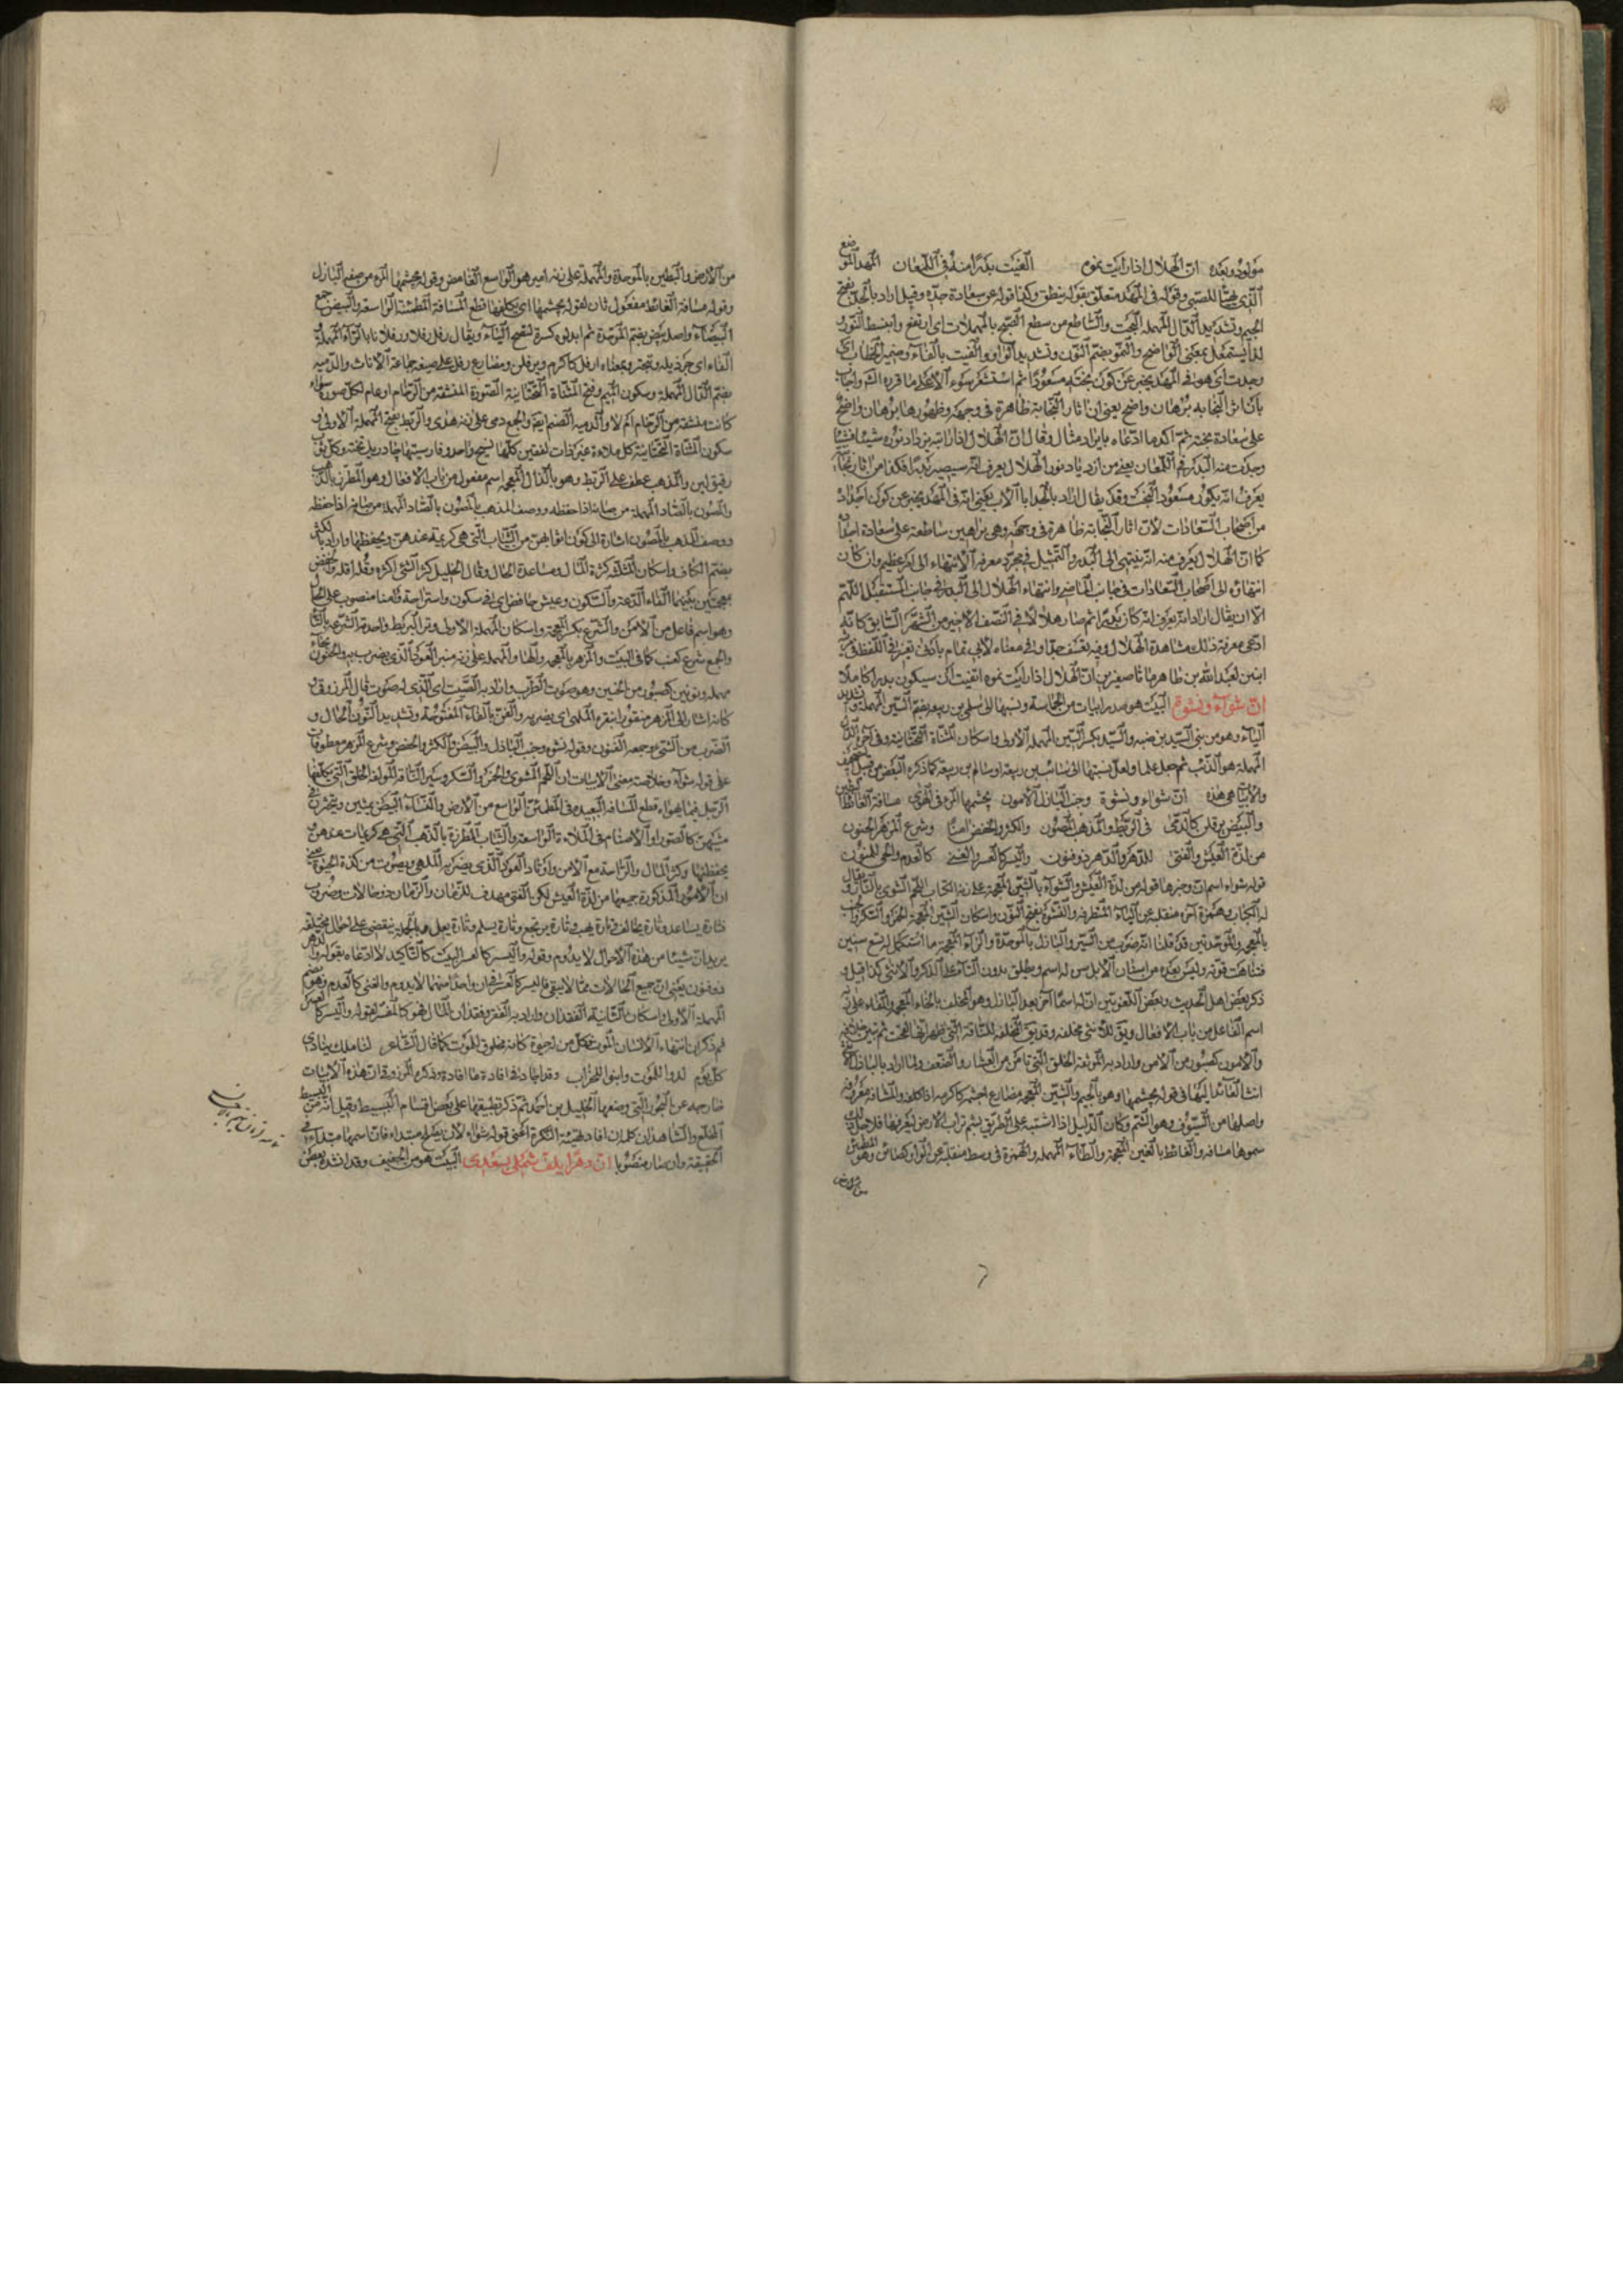 مولود وبعده ان الهلال اذا رايت نموه الفيت بدرا منه في اللمعان المهد الموضع
الذي يهيأ للصبي وقوله في المهد متعلق بقوله ينطق وكذا قوله عن سعادة جده وقيل اراد بالجد بفتح
الجيم وتشديد الدال المهملة البخت والساطع من سطع الصبح بالمهملات اي ارتفع وانبسط النور و
لذا يستعمل بمعنى الواضح والنمو بضم النون وتشديد الواو والفيت بالفاء وضمير الخطاب اي
وجدت اي هو في المهد يخبر عن كون بخته مسعودا ثم استشعر
بان اثر النجابة برهان واضح يعني ان اثار النجابة ظاهرة في وجهه وظهورها برهان واضح
على سعادة بخته ثم اكد ما ادعاه بايراد مثال وقال ان الهلال اذا رايته يزداد نوره شيئا فشيئا
وجدت منه البدر في اللمعان يعني من ازدياد نور الهلال يعرف انه سيصير بدرا فكذا من اثار نجابته
يعرف انه يكون مسعود البخت وقد يقال اراد بالجد ابا الاب يعني انه في المهد يخبر عن كون اجداده
من اصحاب السعادات لان اثار النجابة ظاهرة في وجهه وهي براهين ساطعة على سعادة اجداده
كما ان الهلال يعرف منه انه ينتهي الى البدر والتمثيل في مجرد معرفة الانتهاء الى امر عظيم وان كان
انتهاؤه الى اصحاب السعادات في جانب الماضي وانتهاء الهلال الى البدر في جانب المستقبل اللهم
الا ان يقال اراد انه يعرف انه كان بدرا ثم صار هلالا في النصف الاخير من الشهر السابق كانه
ادعى معرفة ذلك بمشاهدة الهلال وفيه تعسف جدا وفي معناه لابي تمام بادنى تغير في اللفظ في مرثية
ابنين لعبد الله بن طاهر ماتا صغيرين ان الهلال اذا رايت نموه ايقنت ان سيكون بدرا كاملا
ان شواء ونشوة البيت هو صدر ابيات من الحماسة ونسبها الى سلمي بن ربيعة بضم السين المهملة وتشديد
الياء وهو من بني السيد بن ضبة والسيد بكسر السين المهملة الاولى واسكان المثناة التحتانية وفي اخره الدال
المهملة هو الذئب ثم جعل علما ولعل نسبتها الى
والابيات هي هذه ان شواء ونشوة وخبب البازل الامون يجشمها المرء في الهوى مسافة الغائط البطين
والبيض يرفلن كالدمى في الريط والمذهب المصون والكثر والخفض امنا وشرع المزهر الحنون
من لذة العيش والفتى للدهر والدهر ذو فنون واليسر كالعسر والغنى كالعدم والحي للمنون
قوله شواء اسم ان وخبرها قوله من لذة العيش والشواء بالشين المعجمة على زنة الكتاب اللحم المشوي
له الكباب وهمزة اخره منقلبة عن الياء المتطرفة والنشوة بفتح النون واسكان الشين المعجمة الخمر والسكر والخبب
بالمعجمة والموحدتين قد قلنا انه ضرب من السير والبازل بالموحدة والزاء المعجمة ما استكمل له تسع سنين
فتناهت قوته وليس بعده من اسنان الابل سن له اسم ويطلق بدون التاء على الذكر والانثى كذا قيل و
ذكر بعض اهل الحديث وبعض اللغويين ان له اسما اخر بعد البازل وهو المخلف بالخاء المعجمة والفاء على زنة
اسم الفاعل من باب الافعال
والامون كصبور من الامن واراد به الموثقة الخلق التي تامن من العثار والضعف ولما اراد بالبازل
انث العائد اليها في قوله يجشمها وهو بالجيم والشين المعجمة مضارع اجشمه كاكرمه اذا كلفه والمسافة معروفة
واصلها من السوف وهو الشم وكان الدليل اذا اشتبه على الطريق يشم تراب الارض ليعرفها فلاجل ذلك
سموها مسافة والغائط بالغين المعجمة والطاء المهملة والهمزة في وسطه منقلبة عن الواو وهو المطمئن
من الارض
من الارض والبطين بالموحدة والمهملة على زنة امير هو الواسع الغامض وقوله يجشمها المرء من صفة البازل
وقوله مسافة الغائط مفعول ثان لقوله يجشمها اي يكلفها قطع المسافة المطمئنة الواسعة والبيض جمع
البيضاء واصله بيض بضم الموحدة ثم ابدلوه كسرة لتصح الياء ويقال رفل فلان رفلانا بالراء المهملة و
الفاء اي جر ذيله وتبختر وبمعناه ارفل كاكرم ويرفلن ومضارع رفل على صيغة جماعة الاناث والدمية
بضم الدال المهملة وسكون الميم وفتح المثناة التحتانية الصورة المنقشة من الرخام او عام لكل صورة سواء
كانت منقشة من الرخام ام لا والدمية الصنم ايضا والجمع دمى على زنة هدى والريط بفتح المهملة الاولى و
سكون المثناة التحتانية كل ملاءة غير ذات لفقين كلها نسج واحد وفارسيتها چادر يك تخته وكل ثوب
رقيق لين والمذهب عطف على الريط وهو بالذال المعجمة اسم مفعول من باب الافعال وهو المطرز بالذهب
والمصون بالصاد المهملة من صانه اذا حفظه ووصف المذهب بالمصون
ووصف المذهب بالمصون اشارة الى كون اثوابهن من الثياب التي هي كريمة عندهن ويحفظنها واراد بالكثر
بضم الكاف واسكان المثلثة كثرة المال ومساعدة الحال وقال الخليل كثر الشيء اكثره وقله اقله والخفض
بمعجمتين بينهما الفاء الدعة والسكون وعيش خافض اي في سكون واستراحة وامنا منصوب على الحال
وهو اسم فاعل من الامن والشرع بكسر المعجمة واسكان المهملة الاولى وتر البربط واحدته الشرعة بالتاء
والجمع شرع كعنب كما في البيت والمزهر بالمعجمة والهاء والمهملة على زنة منبر العود الذي يضرب به والحنون بحاء
مهملة ونونين كصبور من الحنين وهو صوت الطرب واراد به الصيت اي الذي له صوت قال المرزوقي
كانه اشار الى المزهر منقورا بنقره الملهي اي يضربه والفن بالفاء المفتوحة وتشديد النون الحال و
الضرب من الشيء وجمعه الفنون وقوله نشوة وخبب البازل والبيض والكثر والخفض وشرع المزهر معطوفات
على قوله شواء وخلاصة معنى الابيات ان اللحم المشوي والخمر والسكر وسير الناقة الموثقة الخلق التي يكلفها
الرجل فيما يهواه قطع المسافة البعيدة في المطمئن الواسع من الارض والنساء البيض يمشين ويتبخترن في
مشيهن كالصور او الاصنام في الملاءة الواسعة والثياب المطرزة بالذهب التي هي كريمات عندهن
يحفظنها وكثر المال والراحة مع الامن واوتار العود الذي يضربه الملهي ويصوت من لذة الحيوة يعني
ان الامور المذكورة جميعها من لذة العيش لكن الفتى مهدف للزمان والزمان ذو حالات وضروب
فتارة يساعد وتارة يخالف وتارة يهب وتارة يرتجع وتارة يسلم وتارة يعل وبالجملة ينقضي على احوال مختلفة
يريد ان شيئا من هذه الاحوال لا يدوم وقوله واليسر كالعسر البيت كالتاكيد لما ادعاه بقوله والدهر
ذو فنون يعني ان جميع الحالات مما لا يبقى فاليسر كالعسر فان واحدا منهما لا يدوم والغنى كالعدم وهو بضم
المهملة الاولى واسكان الثانية الفقدان واراد به الفقر وفقدان المال فهو كالمفسر لقوله واليسر كالعسر
ثم ذكر ان انتهاء الانسان الموت فكل من له حيوة كانه مخلوق للموت كما قال الشاعر لنا ملك ينادي
كل يوم لدوا للموت وابنوا للخراب وقد اجاد في افادة ما افاده وذكره المرزوقي ان هذه الابيات
خارجة عن البحور التي وضعها الخليل بن احمد ثم ذكر تطبيقها على بعض اقسام البسيط وقيل انه من البسيط
المخلع والشاهد ان كلمة ان افادت تهيئة النكرة اعني قوله شواء لان يصلح مبتداء فان اسمها مبتداء في
الحقيقة وان صار منصوبا ان دهرا يلف شملي بسعدى البيت هو من الخفيف وقد انشده بعض